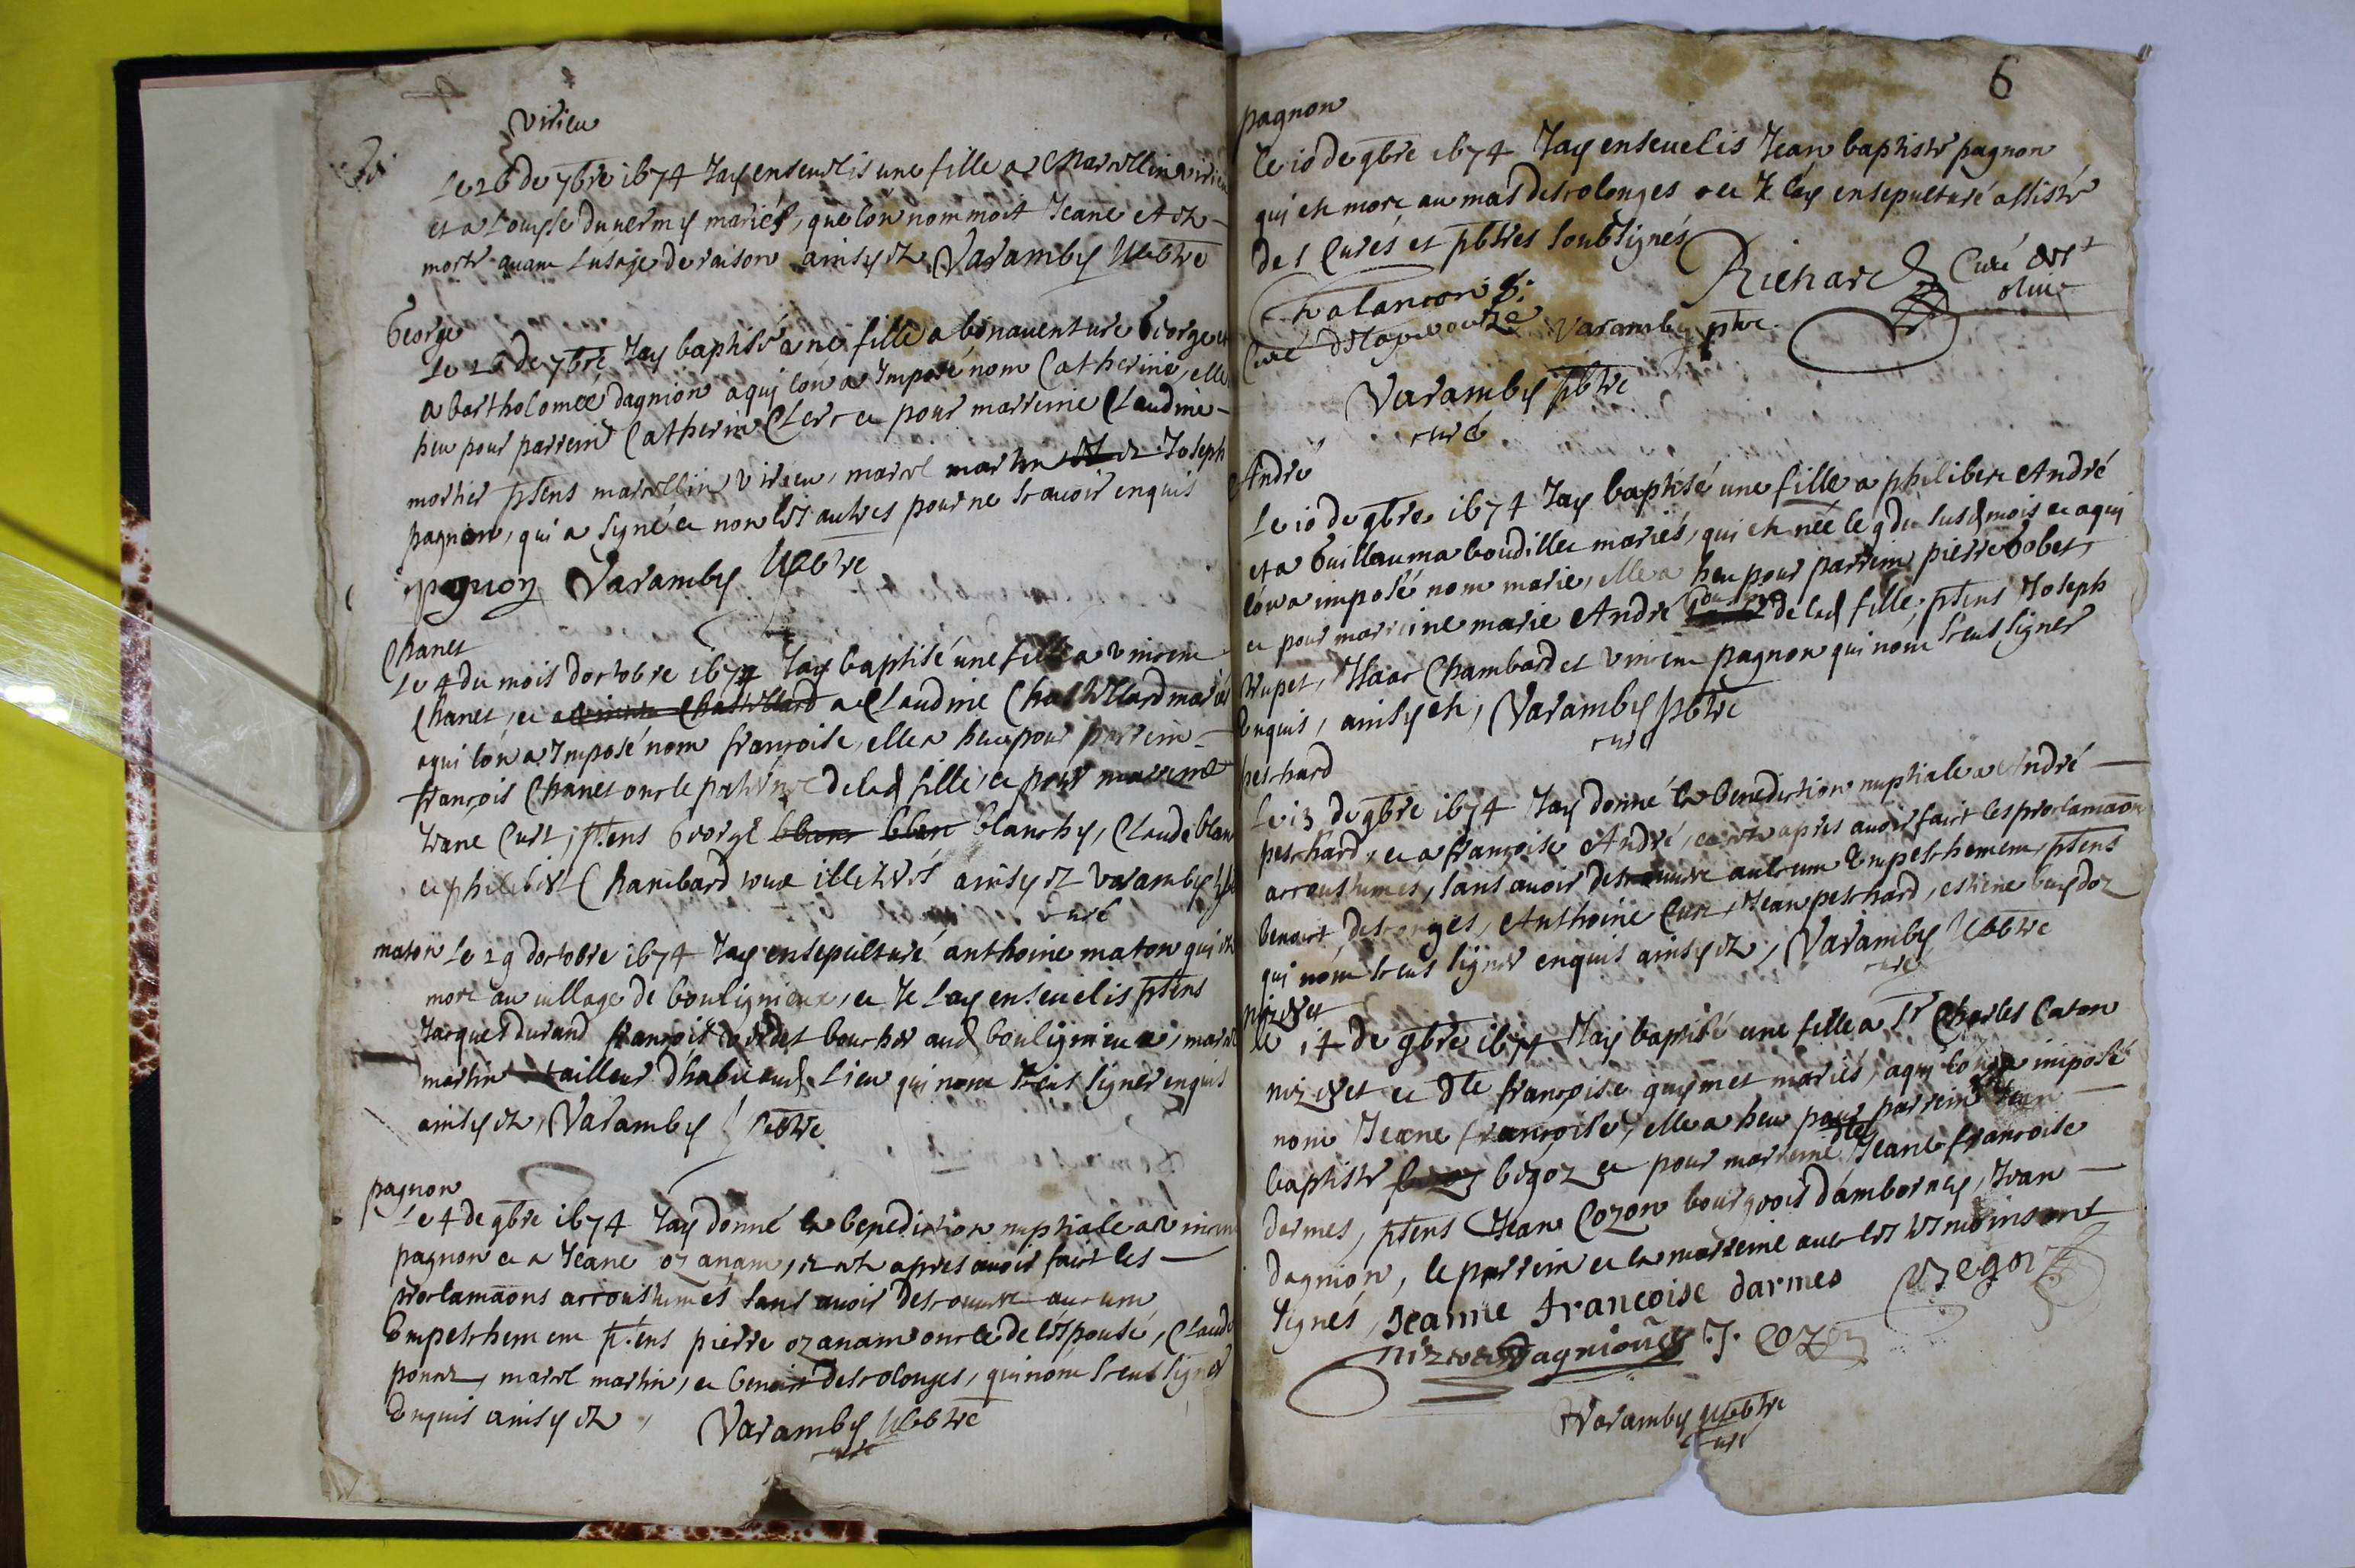 virieu
Le 26 de 7bre 1674 Jay enseuelis une fille a Marcellin virieu
et a Louyse duuermy mariés, que lon nommoit Jeane et est
morte auant lusage de raison ainsy est Varamby pbtre
George
Le 26 de 7bre Jay baptisé une fille a bonauenture George et
a bartholomée dagnion a qui lon a Imposé nom Catherine, elle
heu pour parrein Catherin Clerc et pour marreine Claudine
mortier ptens marcellin virieu, marcel martin et Joseph
pagnion, qui a signé et non les autres pour ne scauoir enquis
pagnon Varamby pbtre
Chanet
Le 4 du mois doctobre 1674 Jay baptisé une fille a vincent
Chanet, et a Claudine Chastellard mariés
a qui lon a Imposé nom francoise, elle a heu pour parrein
francois Chanet oncle paternel de lad fille, et pour marreine
Jeane Curt, ptens George blanchy, Claude blan
et philibert Chambard toux illiterés ainsy est varamby
curé
maton Le 29 doctobre 1674 Jay ensepulturé anthoine maton qui est
mort au uillage de bouligneux, et Je Lay enseuelis ptens
Jacques durand francois verdet boucher aud bouligneux, marcel
martin tailleur dhabit aud Lieu qui nont sceus signer enquis
ainsy est, Varamby pbtre
pagnon
Le 4 de 9bre 1674 Jay donné la benediction nuptiale a vincent
pagnon et a Jeane ozanam, et apres auoir faict les
proclamaons accoustumés sans auoir descouuert aucum
Empeschement ptens pierre ozanam oncle de lespouse, Claude
ponnet, marcel martin, et benoist descolonges, qui nont sceus signer
Enquis ainsy est, Varamby pbtre
curé
6
pagnon
Le 10 de 9bre 1674 Jay enseuelis Jean baptiste pagnon
qui est mort au mas descolonges et Je lay ensepulturé assisté
des Curés et pbtres soubsignés
Richard Curé de St
oliue
Chalancon
Curé de Lapeyrouze varamby ptre
Varamby pbtre
curé
André
Le 10 de 9bre 1674 Jay baptisé une fille a philibert André
et a Guillauma boudillet mariés, qui est née le 9 du susd mois et a qui
lon a imposé nom marie, elle a heu pour parrein pierre Gobet
et pour marreine marie André de lad fille, ptens Joseph
trupet, Isaac Chambard et vincent pagnon qui nont sceus signer
Enquis, ainsy est, Varamby pbtre
curé
peschard
Le 13 de 9bre 1674 Jay donné la benediction nuptiale a André
peschard, et a francoise André, apres auoir faict les proclamaons
accoustumés, sans auoir descouuert aulcum Empeschement, ptens
benoist descolonges, Anthoine Curt, Jean peschard, estiene
qui nont sceus signer enquis ainsy est, Varamby pbtre
curé
nizeret
le 14 de 9bre 1674 Jay baptisé une fille a Sr Charles Caton
nizeret et dlle francoise guymet mariés, a qui lon a imposé
nom Jeane francoise, elle a heu pour parrein Jean
baptiste begoz et pour marreine dlle Jeane francoise
darmes, ptens Jean Cozon bourgeois dambornay, Jean
dagnion, le parrein et la marreine auec les tesmoins ont
signés, Jeanne francoise darmes Begoz
nizeret Dagnion J. Cozon
Varamby pbtre
curé